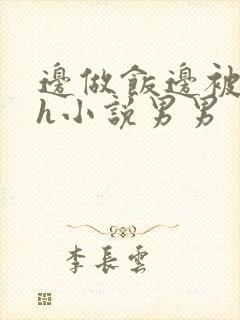 邊做飯邊被
h小說男男
李長雲